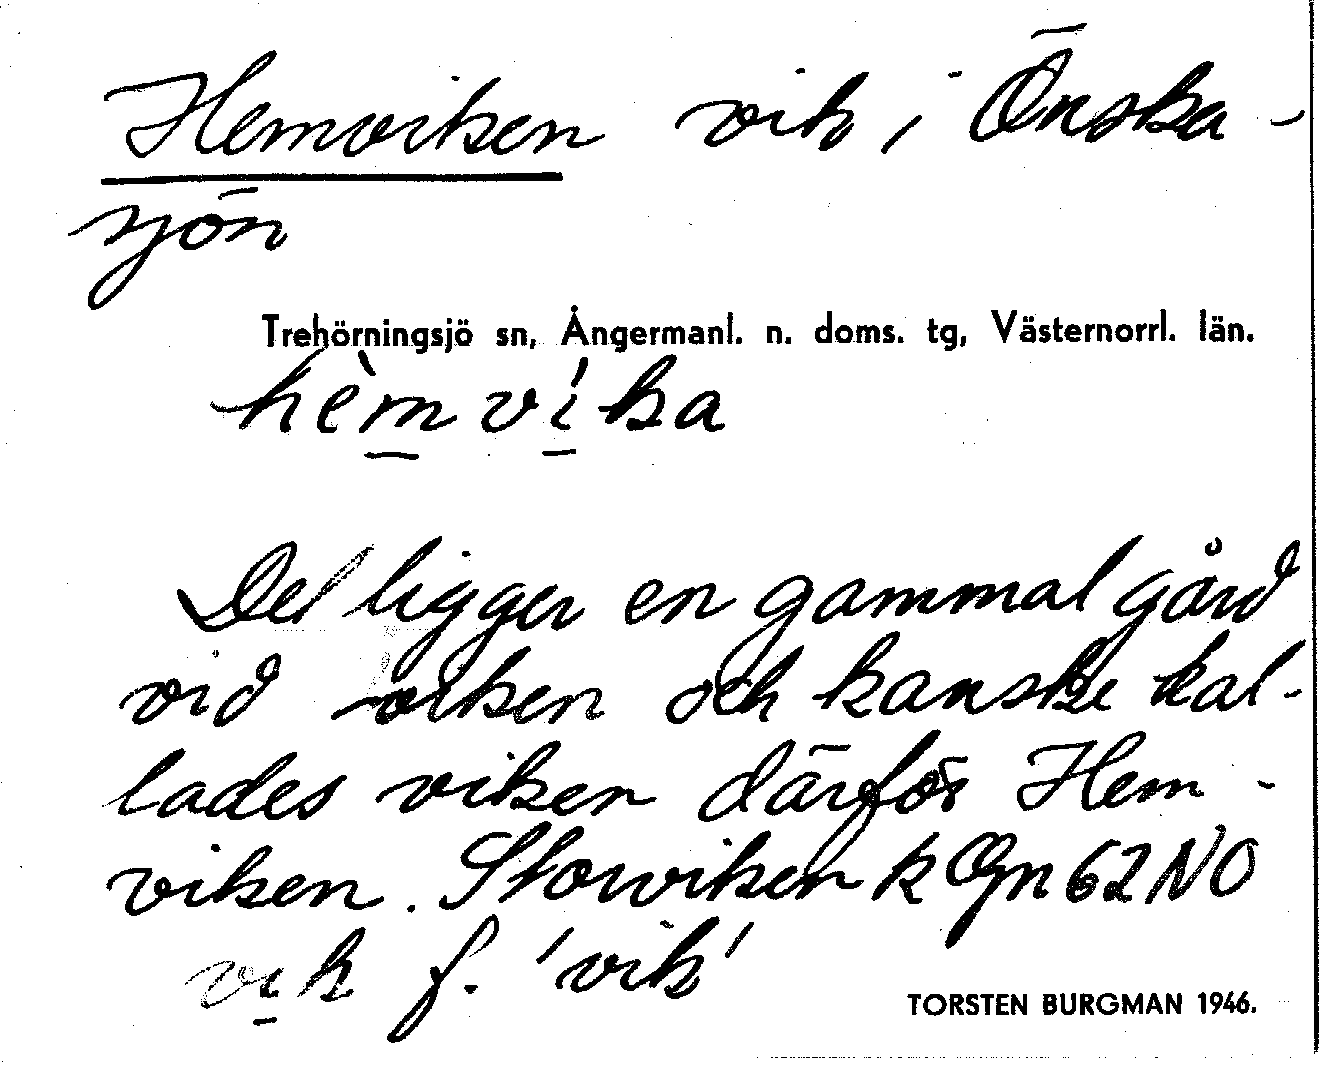 Hemviken vik i Önska-
sjön
Trehörningsjö sn, Ångermanl. n. doms. tg, Västernorrl. län.
hèmvíka
Det ligger en gammal gård
vid viken och kanske kal-
lades viken därför Hem-
viken. Storviken k Ögn 62 NO
vik f. 'vik'
TORSTEN BURGMAN 1946.